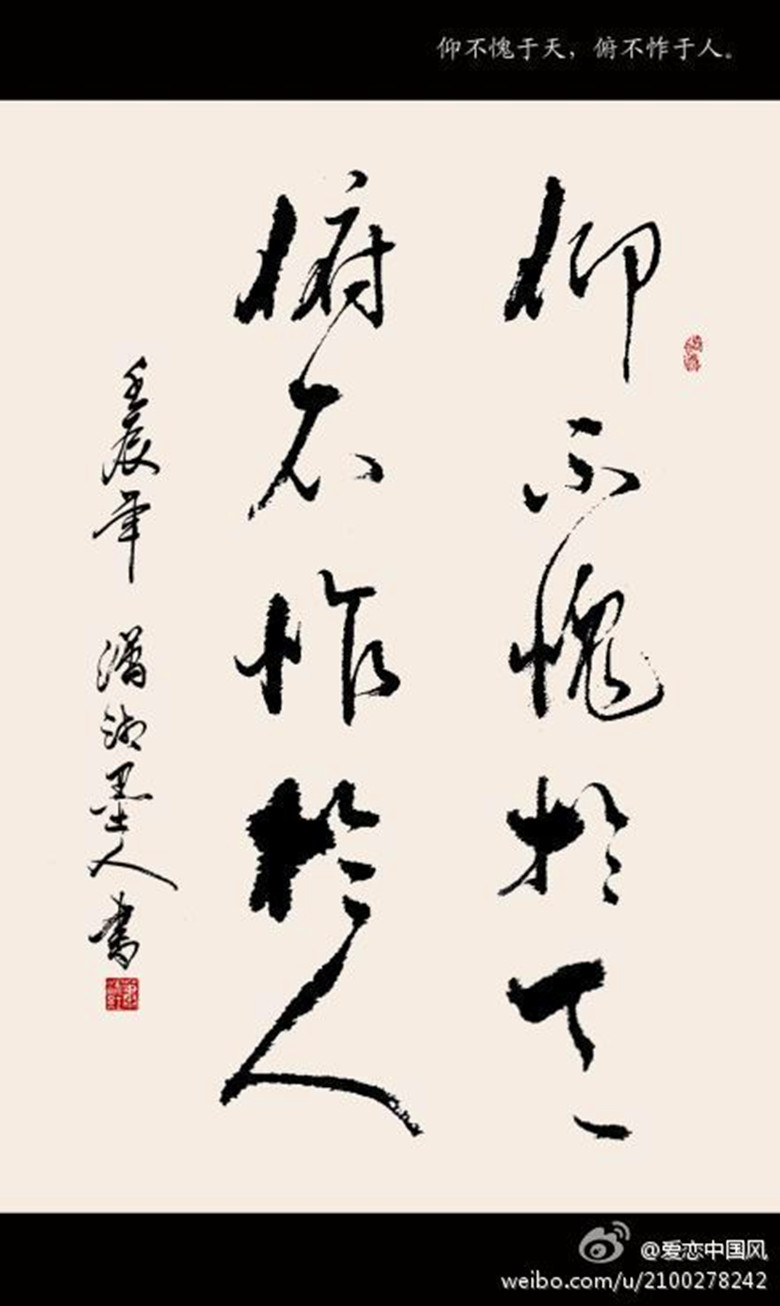 仰不愧于天，俯不怍于人。
仰不愧於天
俯不怍於人
壬辰年 潇湘墨人书
@爱恋中国风
weibo.com/u/2100278242